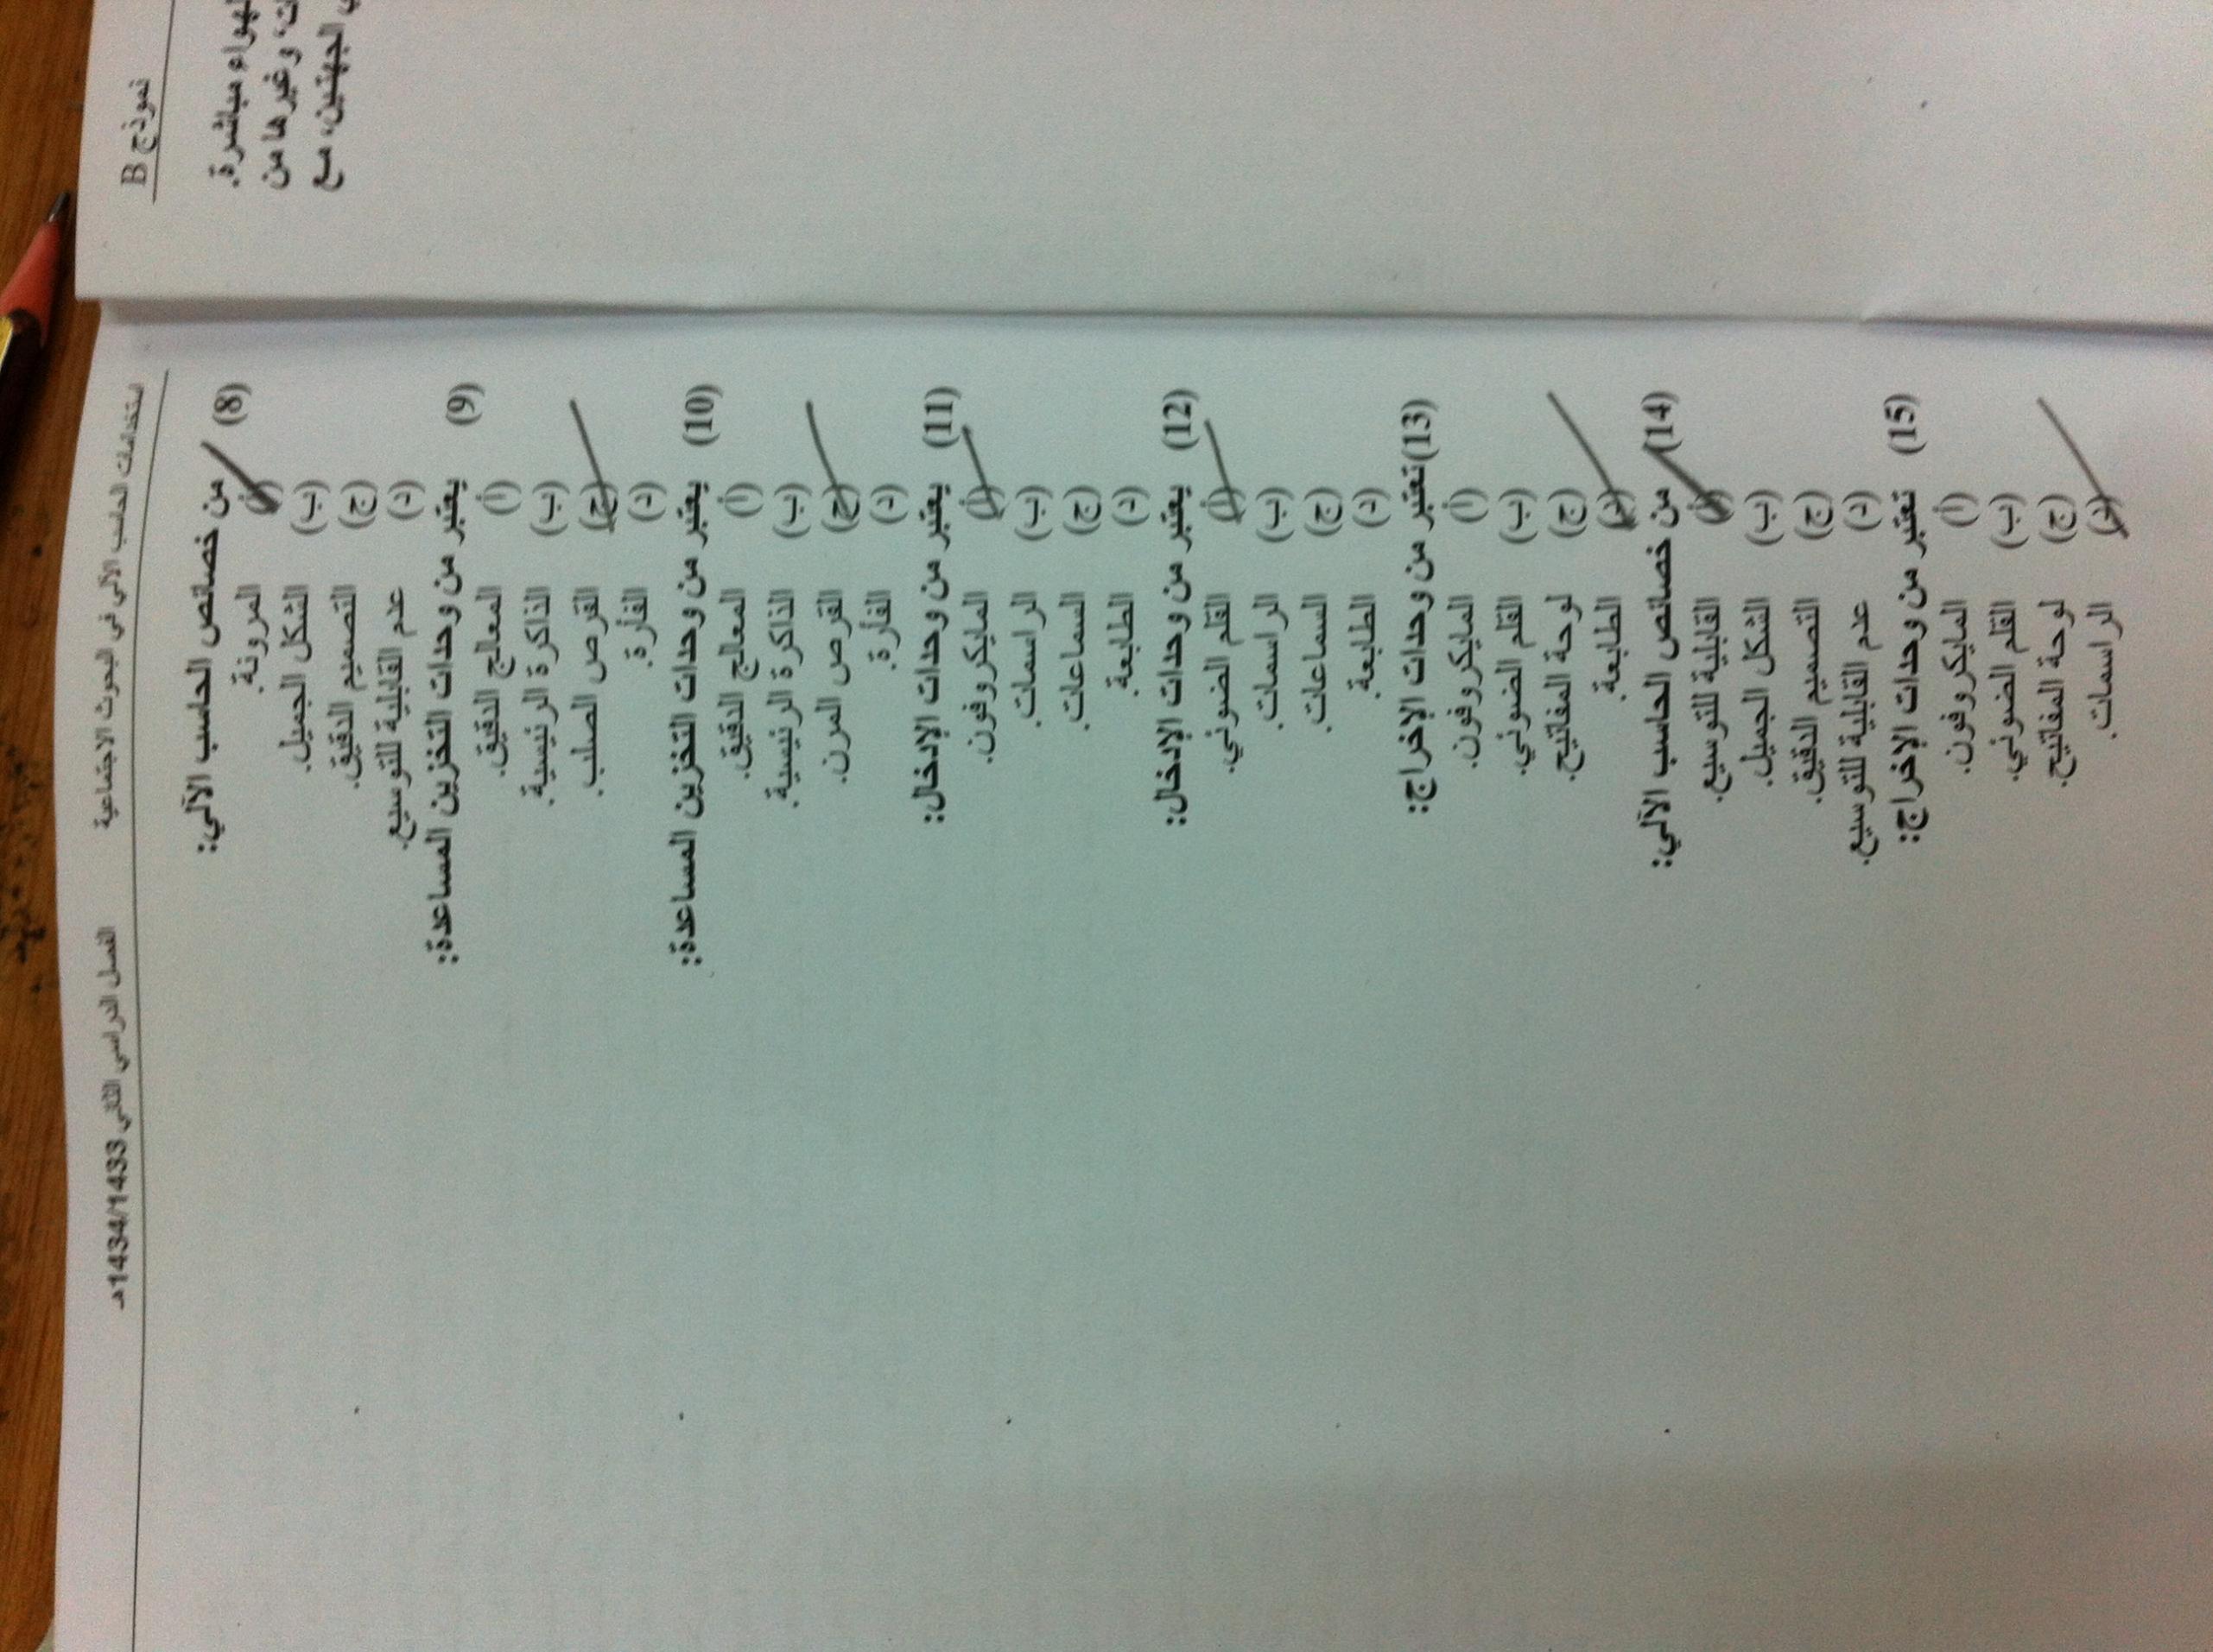 نموذج B
هواء مباشرة.
وغيرها من
الجهتين، مع
استخدامات الحاسب الآلي في البحوث الاجتماعية الفصل الدراسي الثاني 1434/1433هـ
(8) من خصائص الحاسب الآلي:
(أ) المرونة.
(ب) الشكل الجميل.
(ج) التصميم الدقيق.
(د) عدم القابلية للتوسيع.
(9) يعتبر من وحدات التخزين المساعدة:
(أ) المعالج الدقيق.
(ب) الذاكرة الرئيسية.
(ج) القرص الصلب.
(د) الفأرة.
(10) يعتبر من وحدات التخزين المساعدة:
(أ) المعالج الدقيق.
(ب) الذاكرة الرئيسية.
(ج) القرص المرن.
(د) الفأرة.
(11) يعتبر من وحدات الإدخال:
(أ) المايكروفون.
(ب) الراسمات.
(ج) السماعات.
(د) الطابعة.
(12) يعتبر من وحدات الإدخال:
(أ) القلم الضوئي.
(ب) الراسمات.
(ج) السماعات.
(د) الطابعة.
(13) تعتبر من وحدات الإخراج:
(أ) المايكروفون.
(ب) القلم الضوئي.
(ج) لوحة المفاتيح.
(د) الطابعة.
(14) من خصائص الحاسب الآلي:
(أ) القابلية للتوسيع.
(ب) الشكل الجميل.
(ج) التصميم الدقيق.
(د) عدم القابلية للتوسيع.
(15) تعتبر من وحدات الإخراج:
(أ) المايكروفون.
(ب) القلم الضوئي.
(ج) لوحة المفاتيح.
(د) الراسمات.